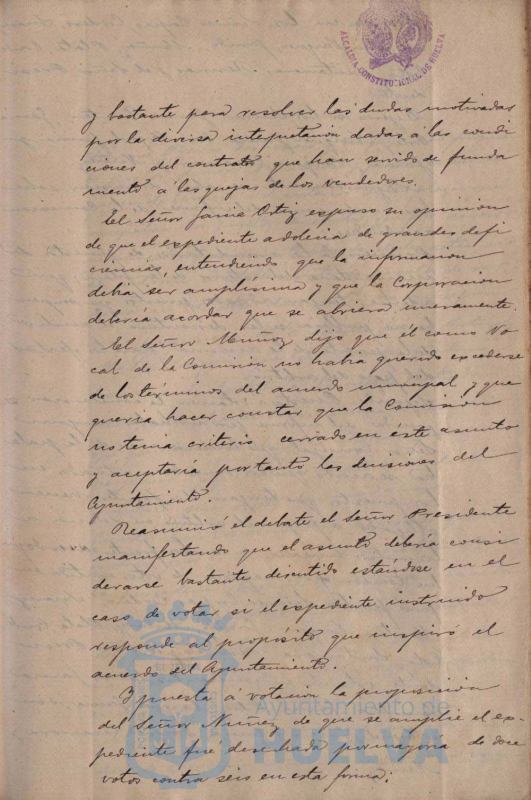 ALCALDIA CONSTITUCIONAL DE HUELVA
y bastante para resolver las dudas motivadas
por la diversa intepretación dadas á las condi
ciones del contrato que han servido de funda
mento á las quejas de los vendedores.
El Señor Jaime Ortiz expuso su opinion
de que el expediente adolecia de grandes defi
ciencias, entendiendo que la informacion
debia ser amplísima y que la Corporacion
deberia acordar que se abriera nuevamente.
El Señor Muñoz dijo que él como Vo
cal de la Comisión no habia querido excederse
de los términos del acuerdo municipal, y que
queria hacer constar que la Comision
no tenia criterio cerrado en éste asunto
y aceptaría por tanto las decisiones del
Ayuntamiento.
Reasumió el debate el Señor Presidente
manifestando que el asunto debería consi
derarse bastante discutido estándose en el
caso de votar si el expediente instruido
responde al propósito que inspiró el
acuerdo del Ayuntamiento.
Y puesta a votacion la proposicion
del Señor Nuñez de que se amplie el ex
pediente fue desechada por mayoría de doce
votos contra seis en esta forma:
Ayuntamiento de
HUELVA